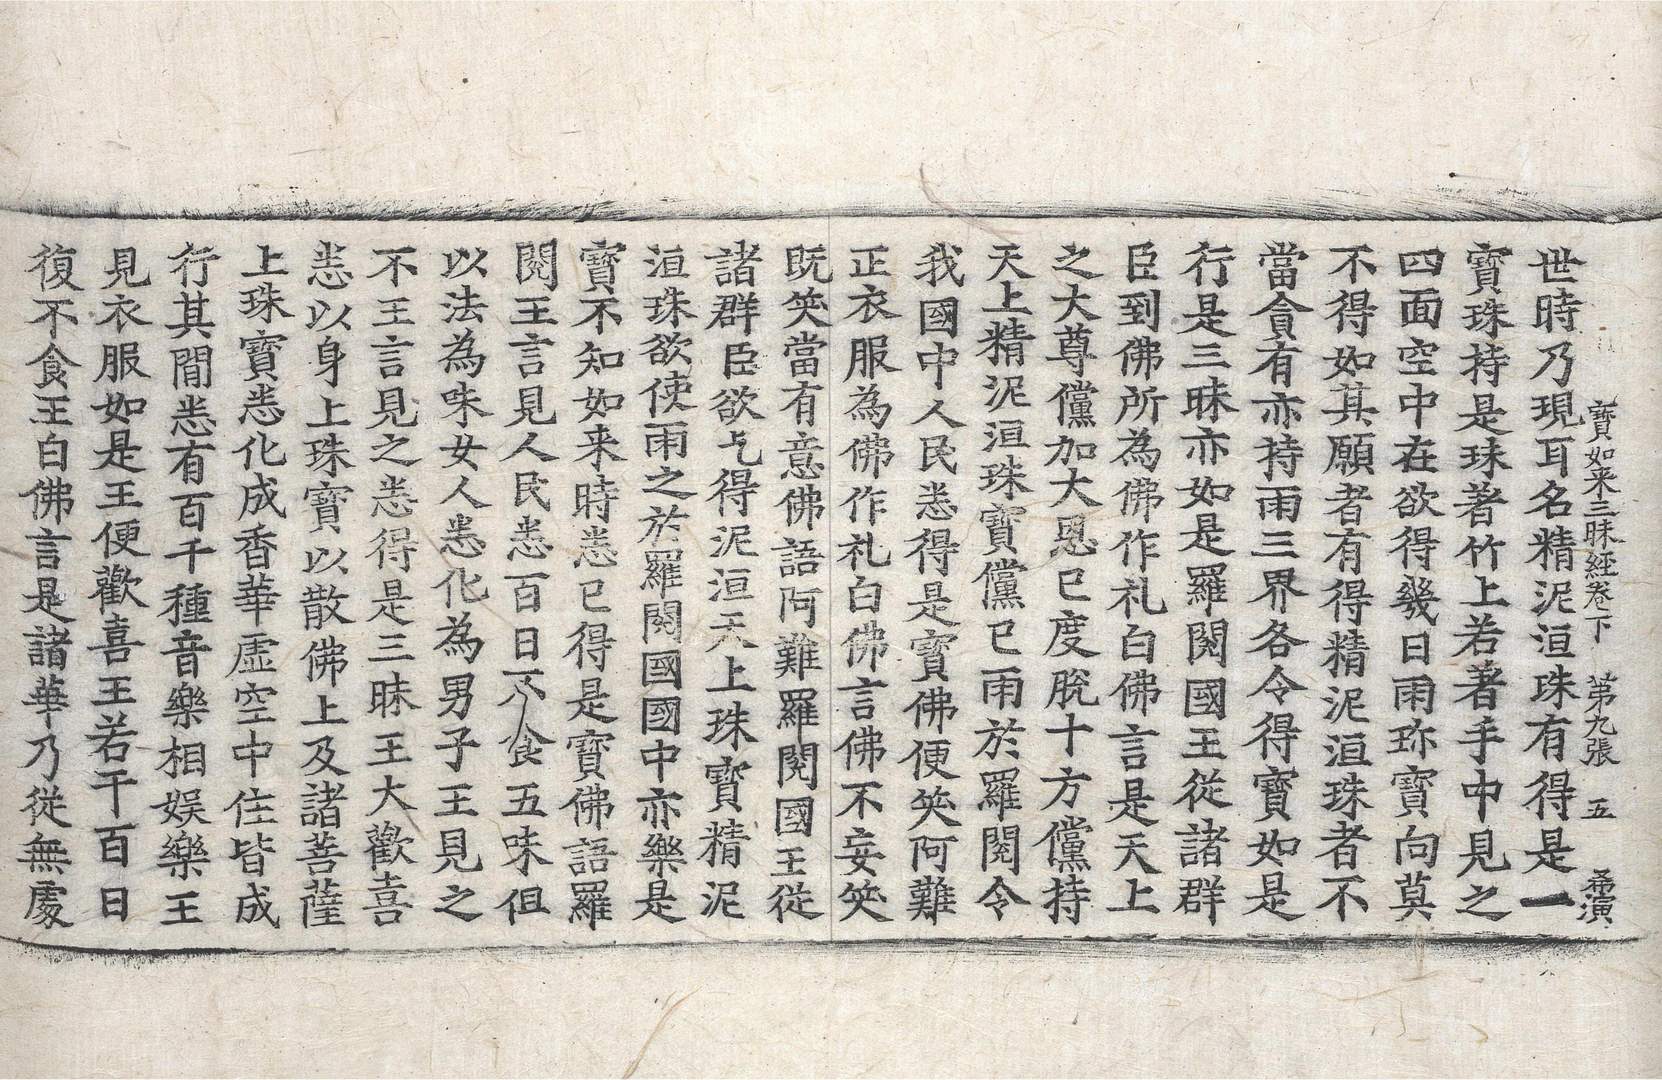 寶如来三昧経卷下 第九張 五 希演
世時乃現耳名精泥洹珠有得是一
寶珠持是珠著竹上若著手中見之
四面空中在欲得幾日雨珎寶向莫
不得如其願者有得精泥洹珠者不
當貪有亦持雨三界各令得寶如是
行是三昧亦如是羅閱國王從諸群
臣到佛所為佛作礼白佛言是天上
之大尊儻加大恩已度脫十方儻持
天上精泥洹珠寶儻已雨於羅閱令
我國中人民悉得是寶佛便笑阿難
正衣服為佛作礼白佛言佛不妄笑
既笑當有意佛語阿難羅閱國王從
諸群臣欲乞得泥洹天上珠寶精泥
洹珠欲使雨之於羅閱國國中亦樂是
寶不知如来時悉已得是寶佛語羅
閱王言見人民悉百日不食五味但
以法為味女人悉化為男子王見之
不王言見之悉得是三昧王大歡喜
悉以身上珠寶以散佛上及諸菩薩
上珠寶悉化成香華虛空中住皆成
行其間悉有百千種音樂相娛樂王
見衣服如是王便歡喜王若干百日
復不食王白佛言是諸華乃從無處